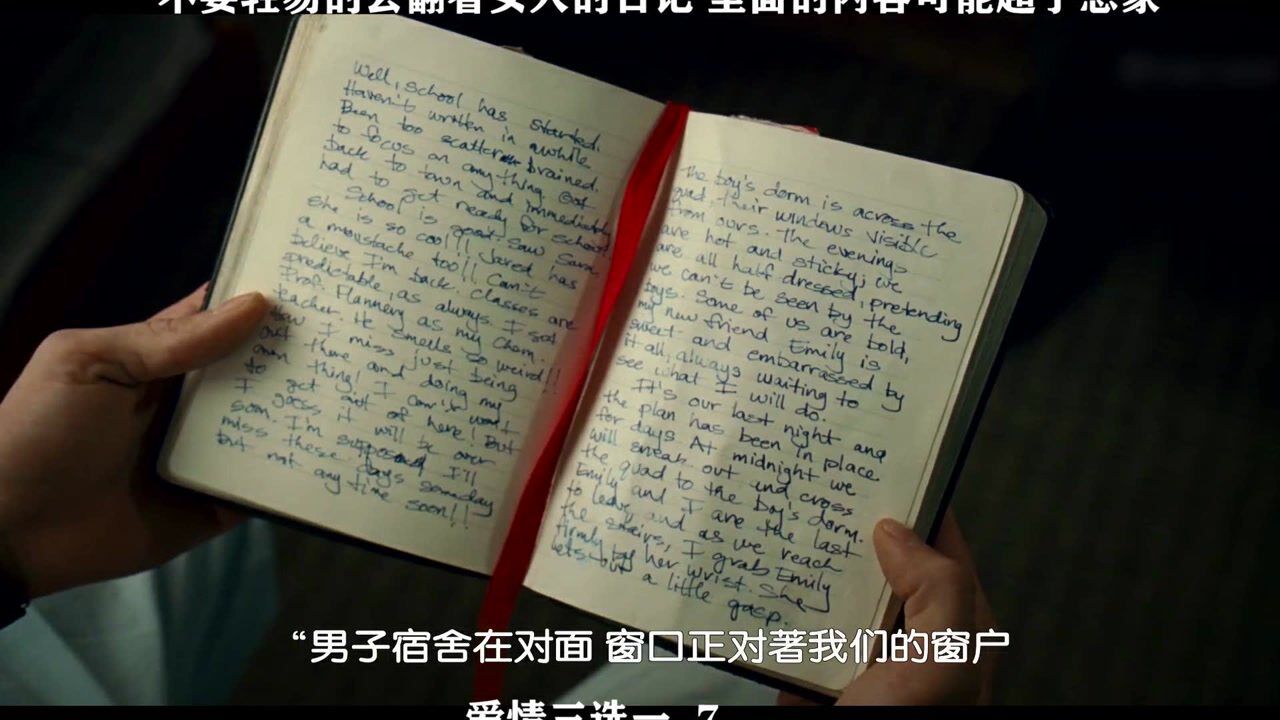 不要轻易的去翻看女人的日记 里面的内容可能超乎想象
Well, school has started.
Haven't written in awhile
Been too scatter brained.
to focus on any thing. Got
back to town and immediately
had to get ready for school!
School is good. Saw Sara.
She is so cool!! Jared has
a moustache too!! Can't
believe I'm back. Classes are
predictable as always. I sat
Prof. Flannery as my Chem.
teacher. He smells so weird!!
How I miss just being
out there and doing my
own thing! I can't wait
to get out of here! But
I guess it will be over
soon. I'm supposed I'll
miss these days someday
but not any time soon!!
The boy's dorm is across the
quad, their windows visible
from ours. The evenings
are hot and sticky; we
are all half dressed, pretending
we can't be seen by the
boys. Some of us are bold,
my new friend Emily is
sweet and embarrassed by
it all, always waiting to
see what I will do.
It's our last night and
the plan has been in place
for days. At midnight we
will sneak out and cross
the quad to the boy's dorm.
Emily and I are the last
to leave, and as we reach
the stairs, I grab Emily
firmly by her wrist. She
lets out a little gasp.
“男子宿舍在对面 窗口正对著我们的窗户
爱情三选一 7